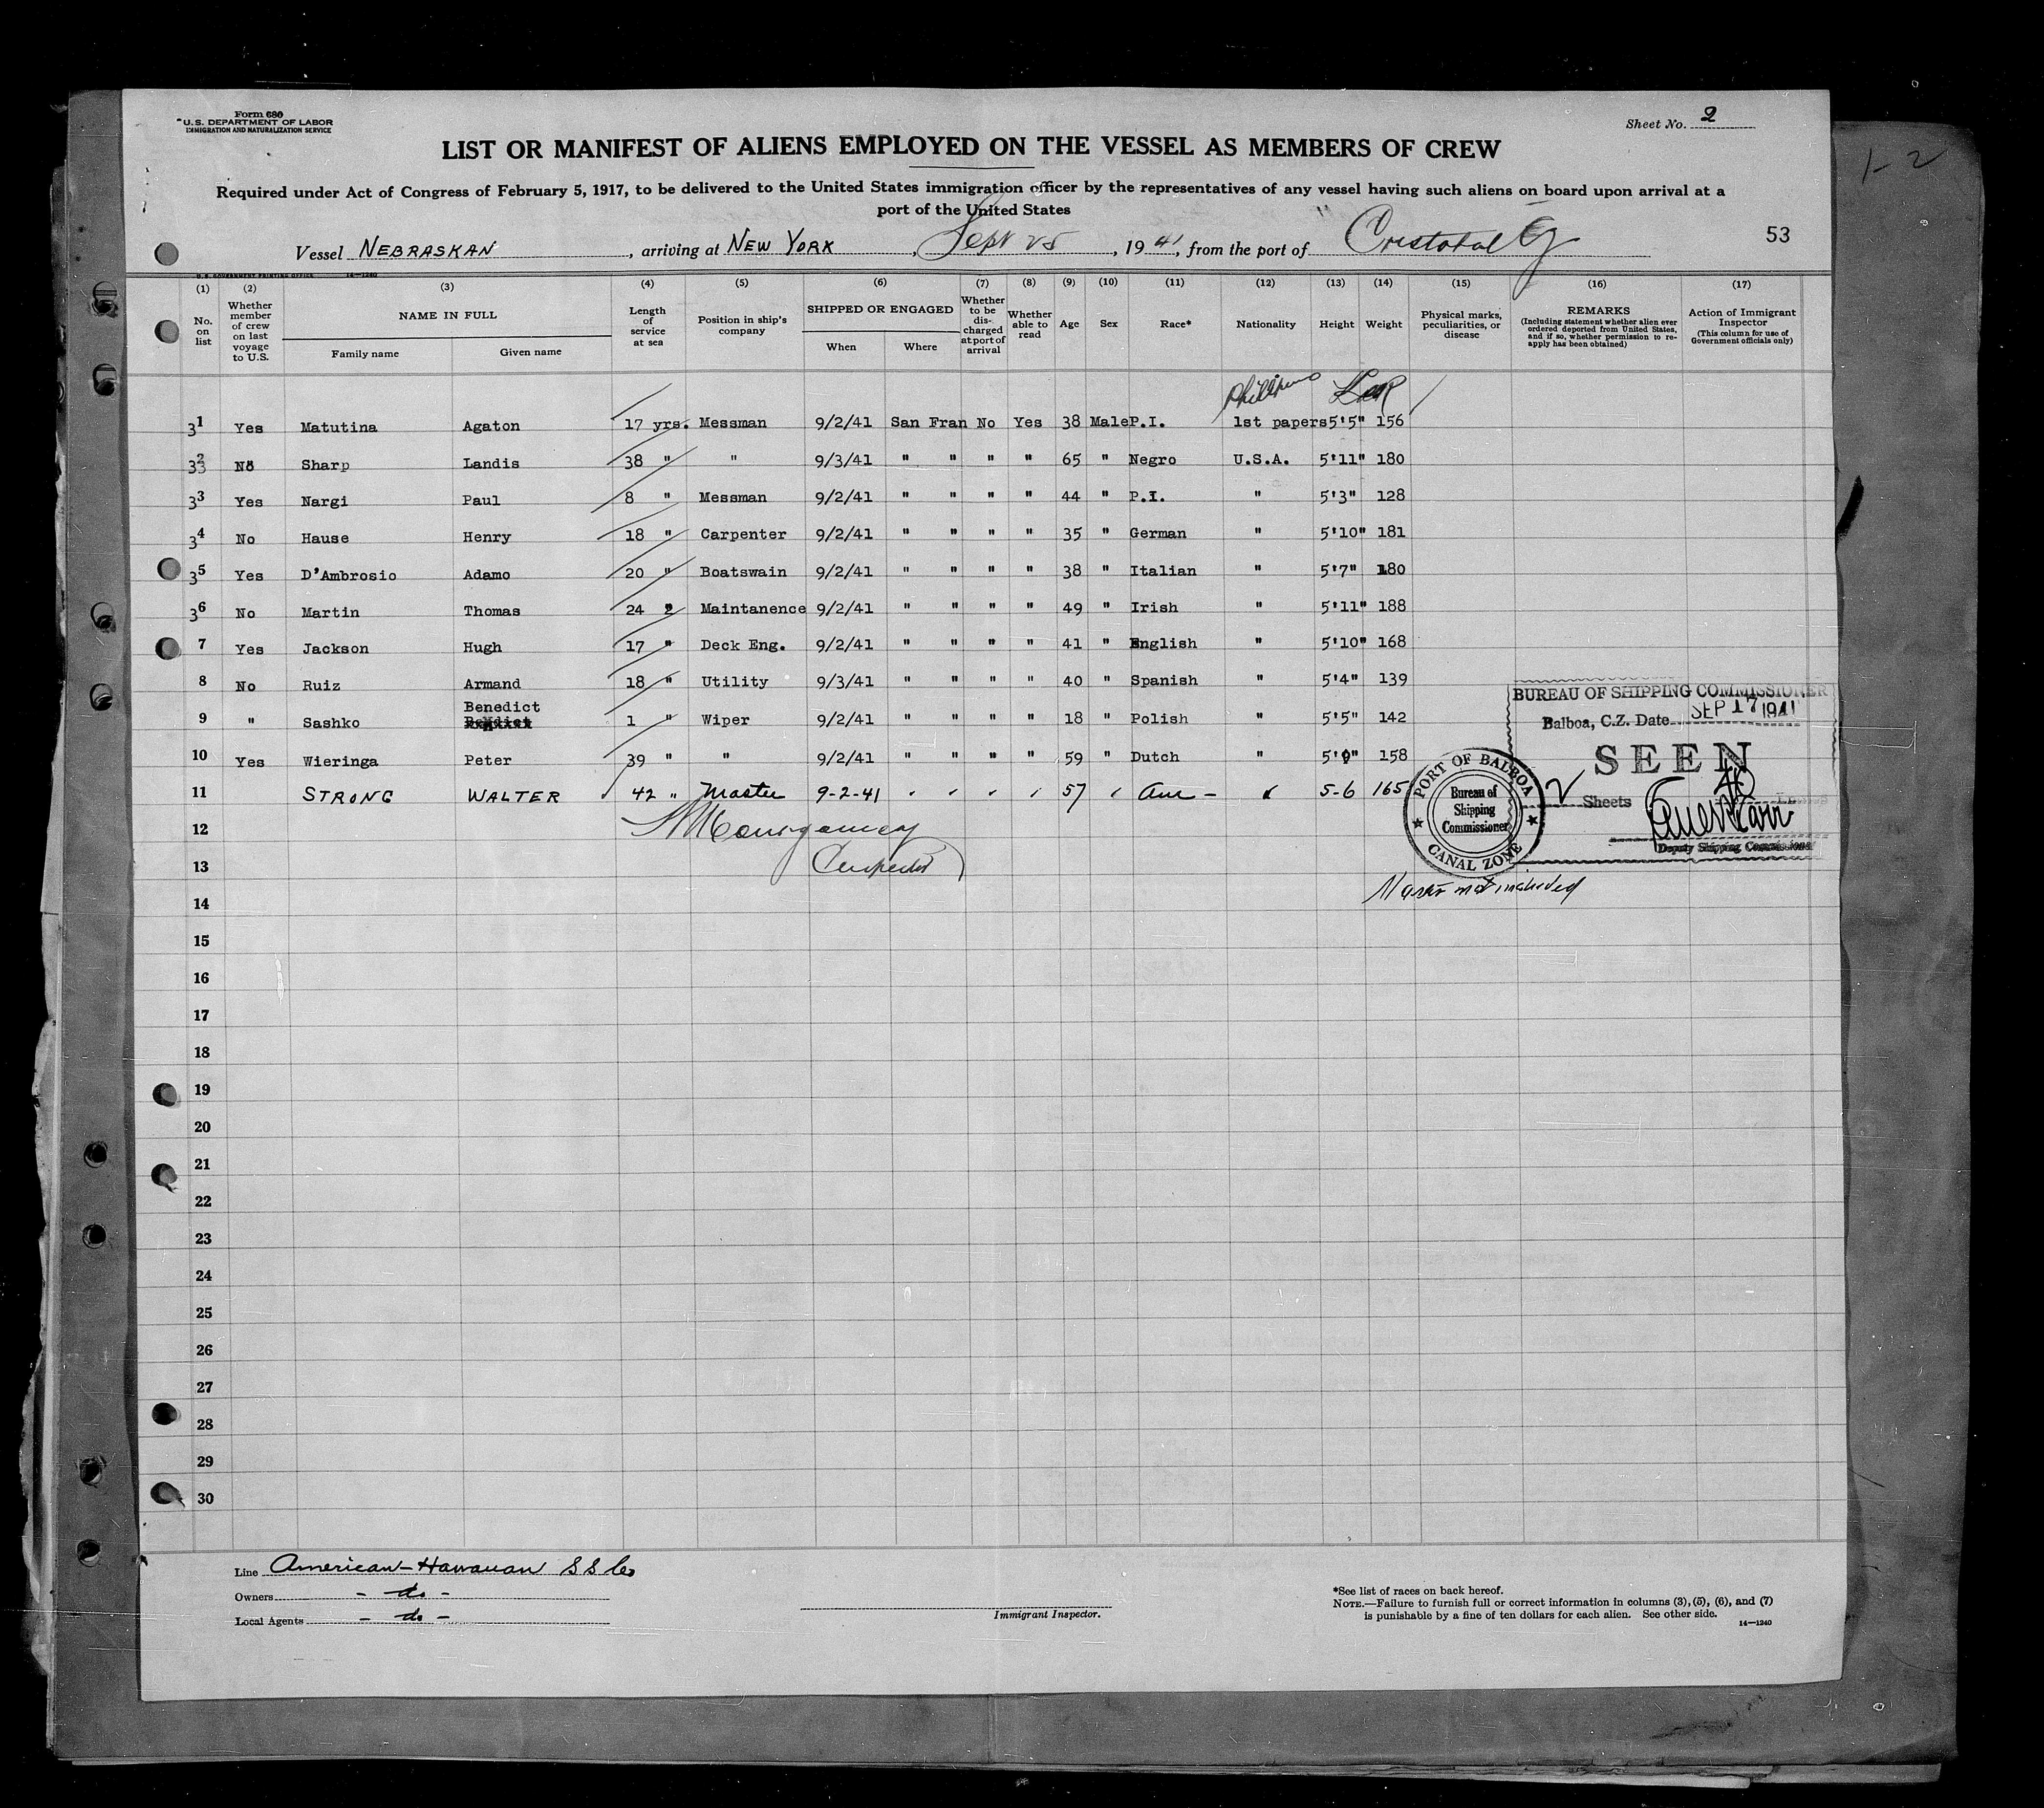 Form 680
U.S. DEPARTMENT OF LABOR
IMMIGRATION AND NATURALIZATION SERVICE
Sheet No. 2
1-2
LIST OR MANIFEST OF ALIENS EMPLOYED ON THE VESSEL AS MEMBERS OF CREW
Required under Act of Congress of February 5, 1917, to be delivered to the United States immigration officer by the representatives of any vessel having such aliens on board upon arrival at a
port of the United States
53
Vessel NEBRASKAN, arriving at NEW YORK, Sept 25, 1941, from the port of Cristobal CZ
U. S. GOVERNMENT PRINTING OFFICE 14—1240
(1) No. on list
(2) Whether member of crew on last voyage to U.S.
(3) NAME IN FULL Family name Given name
(4) Length of service at sea
(5) Position in ship's company
(6) SHIPPED OR ENGAGED When Where
(7) Whether to be dis-charged at port of arrival
(8) Whether able to read
(9) Age
(10) Sex
(11) Race*
(12) Nationality
(13) Height
(14) Weight
(15) Physical marks, peculiarities, or disease
(16) REMARKS (Including statement whether alien ever ordered deported from United States, and if so, whether permission to re-apply has been obtained)
(17) Action of Immigrant Inspector (This column for use of Government officials only)
Phillipino
31 Yes Matutina Agaton 17 yrs. Messman 9/2/41 San Fran No Yes 38 Male P.I. 1st papers 5'5" 156
3 2 No Sharp Landis 38 " " 9/3/41 " " " " 65 " Negro U.S.A. 5'11" 180
33 Yes Nargi Paul 8 " Messman 9/2/41 " " " " 44 " P.I. " 5'3" 128
34 No Hause Henry 18 " Carpenter 9/2/41 " " " " 35 " German " 5'10" 181
35 Yes D'Ambrosio Adamo 20 " Boatswain 9/2/41 " " " " 38 " Italian " 5'7" 180
36 No Martin Thomas 24 " Maintanence 9/2/41 " " " " 49 " Irish " 5'11" 188
7 Yes Jackson Hugh 17 " Deck Eng. 9/2/41 " " " " 41 " English " 5'10" 168
8 No Ruiz Armand 18 " Utility 9/3/41 " " " " 40 " Spanish " 5'4" 139
Benedict
9 " Sashko 1 " Wiper 9/2/41 " " " " 18 " Polish " 5'5" 142
10 Yes Wieringa Peter 39 " " 9/2/41 " " " " 59 " Dutch " 5'9" 158
11 STRONG WALTER 42 " Master 9-2-41 " " " " 57 " Am- " 5-6 165
12 Montgomery
13 Inspector
14
15
16
17
18
19
20
21
22
23
24
25
26
27
28
29
30
BUREAU OF SHIPPING COMMISSIONER
Balboa, C.Z. Date SEP 17 1941
SEEN
2 Sheets
Deputy Shipping Commissioner
PORT OF BALBOA
Bureau of
Shipping
Commissioner
CANAL ZONE
Master not included
Line American-Hawaiian S S Co
Owners - do -
Local Agents - do -
Immigrant Inspector.
*See list of races on back hereof.
NOTE.—Failure to furnish full or correct information in columns (3), (5), (6), and (7)
is punishable by a fine of ten dollars for each alien. See other side.
14—1240